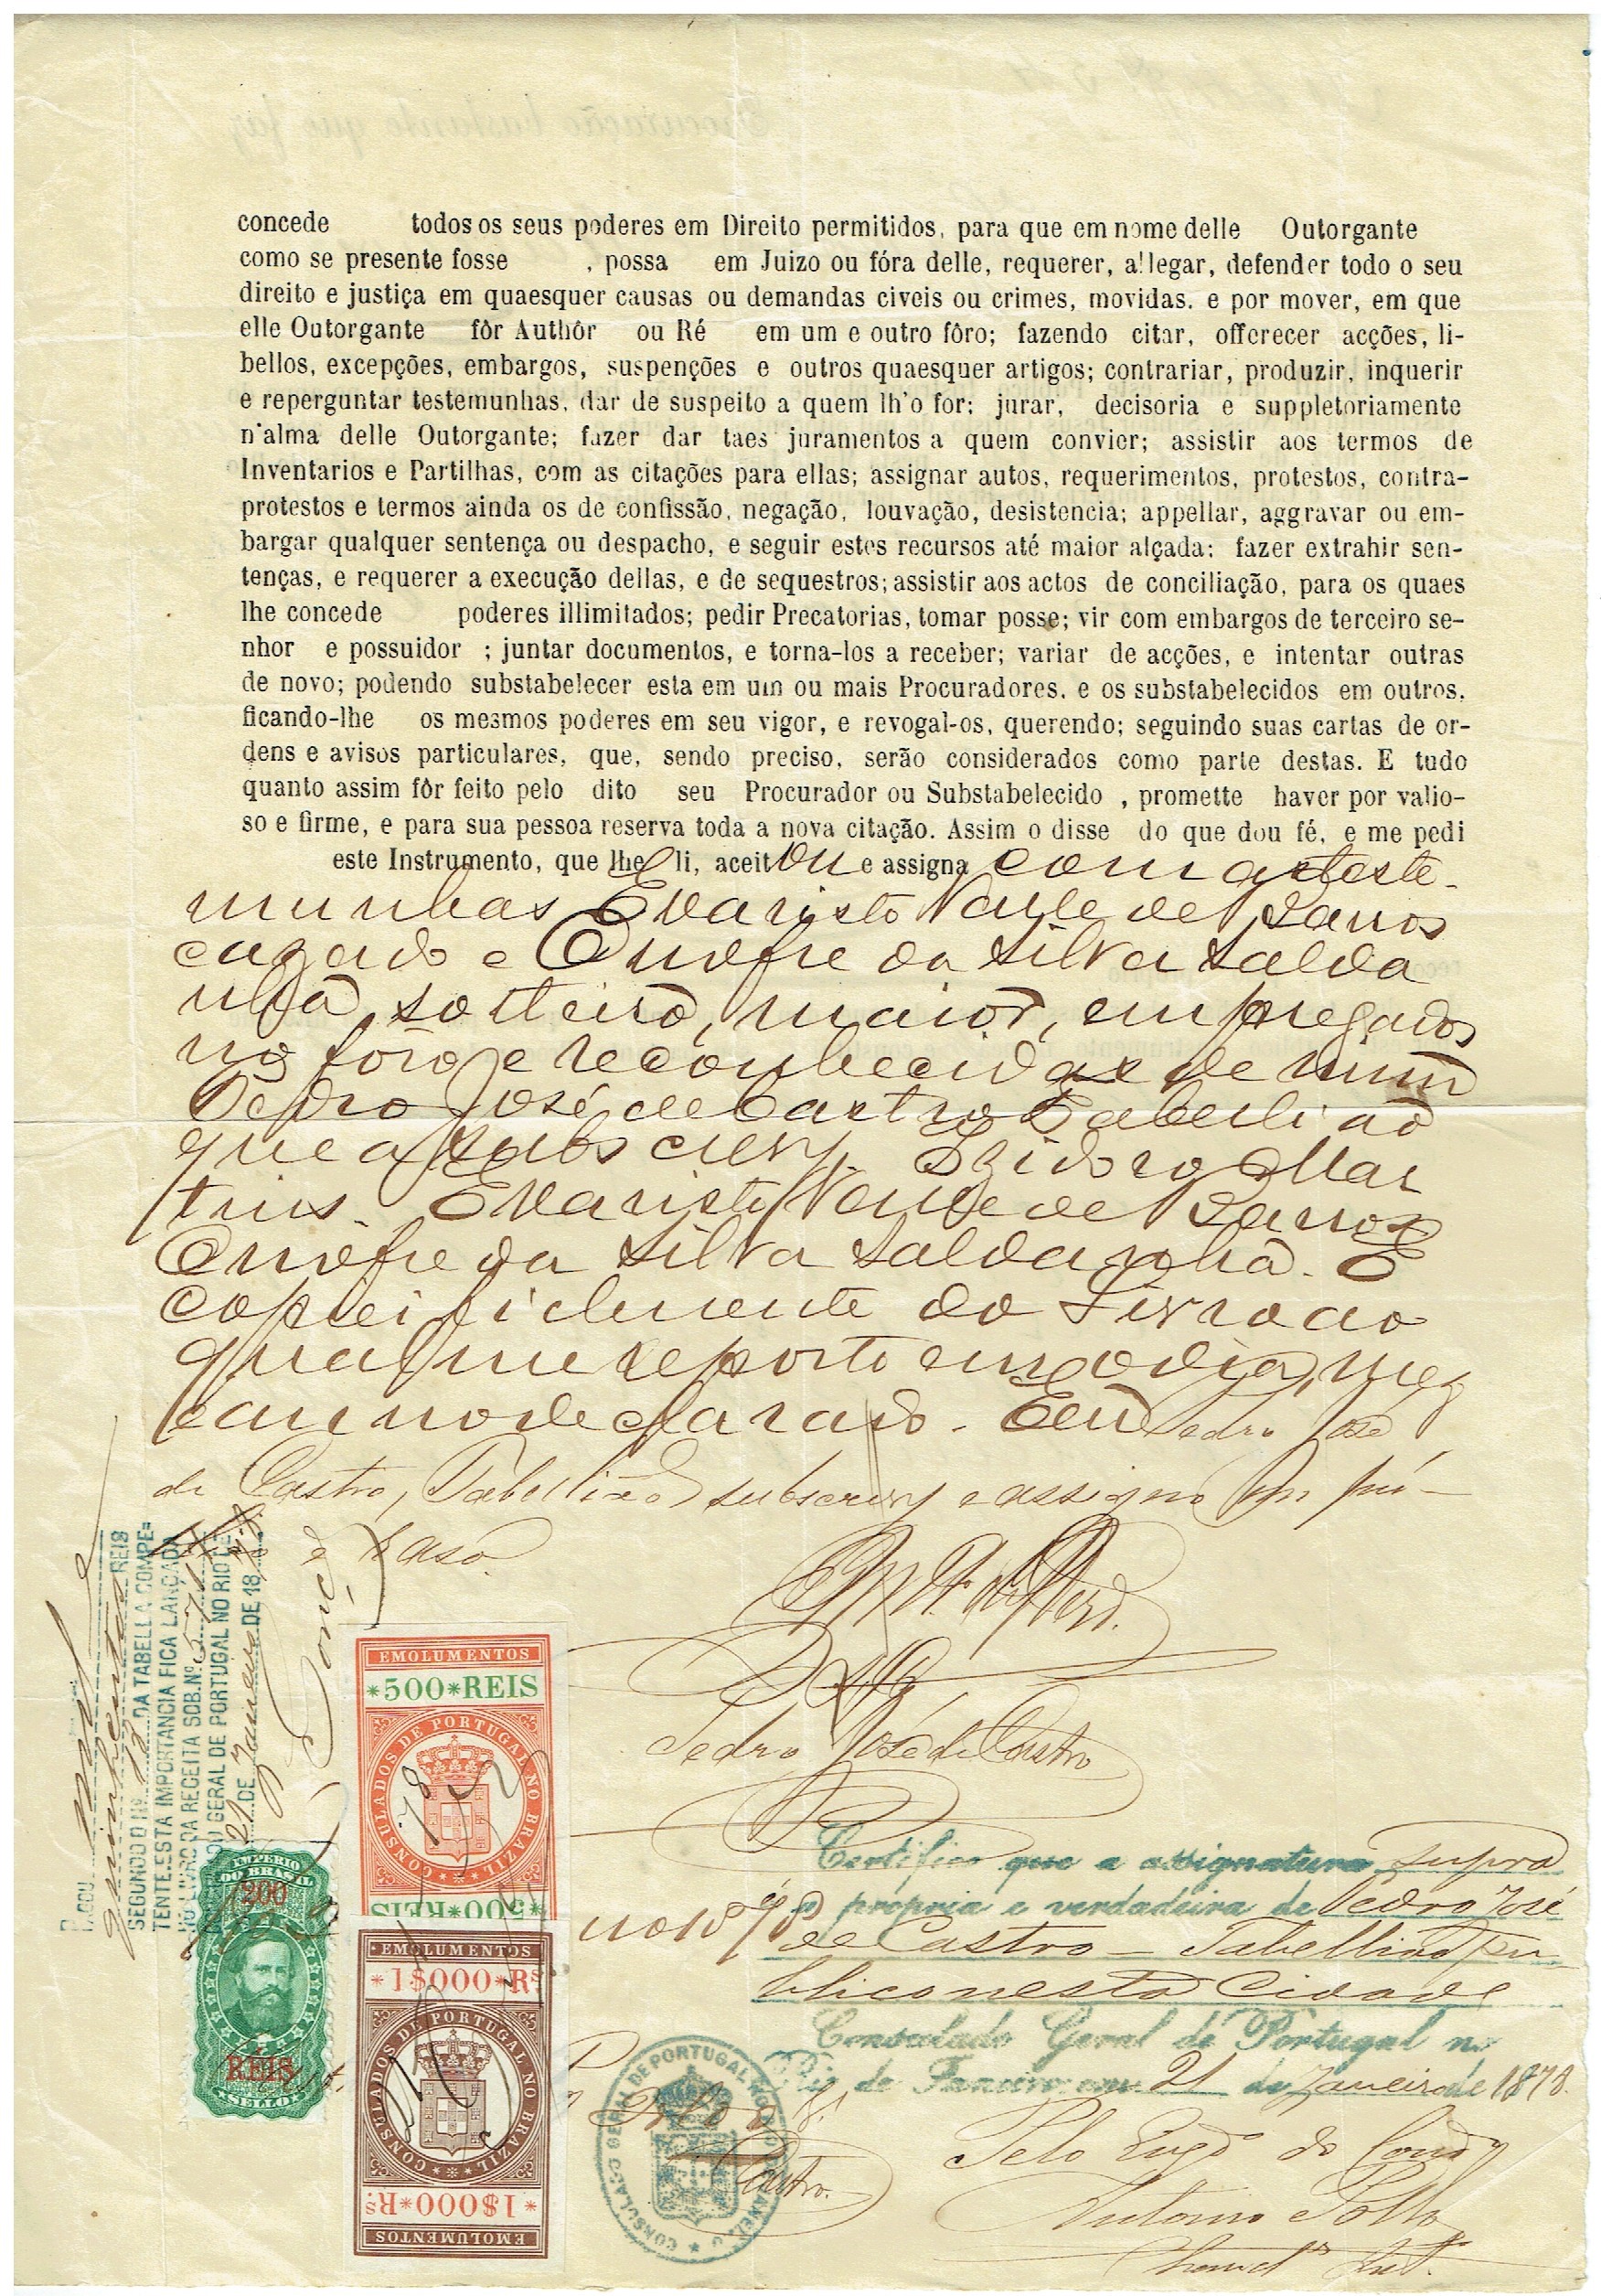 concede todos os seus poderes em Direito permitidos, para que em nome delle Outorgante
como se presente fosse , possa em Juizo ou fóra delle, requerer, allegar, defender todo o seu
direito e justiça em quaesquer causas ou demandas civeis ou crimes, movidas. e por mover, em que
elle Outorgante fôr Authôr ou Ré em um e outro fôro; fazendo citar, offerecer acções, li-
bellos, excepções, embargos, suspenções e outros quaesquer artigos; contrariar, produzir, inquerir
e reperguntar testemunhas, dar de suspeito a quem lh'o for; jurar, decisoria e suppletoriamente
n'alma delle Outorgante; fazer dar taes juramentos a quem convier; assistir aos termos de
Inventarios e Partilhas, com as citações para ellas; assignar autos, requerimentos, protestos, contra-
protestos e termos ainda os de confissão, negação, louvação, desistencia; appellar, aggravar ou em-
bargar qualquer sentença ou despacho, e seguir estes recursos até maior alçada; fazer extrahir sen-
tenças, e requerer a execução dellas, e de sequestros; assistir aos actos de conciliação, para os quaes
lhe concede poderes illimitados; pedir Precatorias, tomar posse; vir com embargos de terceiro se-
nhor e possuidor ; juntar documentos, e torna-los a receber; variar de acções, e intentar outras
de novo; podendo substabelecer esta em um ou mais Procuradores. e os substabelecidos em outros,
ficando-lhe os mesmos poderes em seu vigor, e revogal-os, querendo; seguindo suas cartas de or-
dens e avisos particulares, que, sendo preciso, serão considerados como parte destas. E tudo
quanto assim fôr feito pelo dito seu Procurador ou Substabelecido , promette haver por valio-
so e firme, e para sua pessoa reserva toda a nova citação. Assim o disse do que dou fé, e me pedi
este Instrumento, que lhe li, aceitou e assigna com as teste-
munhas Evaristo Valle de Barros
cazado e Onofre da Silva Salda
nha, solteiro, maior, empregados
no foro e reconhecidas de mim
Pedro José de Castro Tabellião
que a subscrevy. Izidoro Mar
tins. Evaristo Valle de Barros
Onofre da Silva Saldanha. E
copiei fielmente do Livro ao
qual me reporto em o dia, mez
e anno declarado. Eu Pedro José
de Castro, Tabellião subscrevy e assigno em pu-
blico e raso.
Pedro José de Castro
Certifico que a assignatura supra
é propria e verdadeira de Pedro José
de Castro - Tabellião Pu-
blico nesta Cidade
Consulado Geral de Portugal no
Rio de Janeiro em 21 de Janeiro de 1878.
Castro.
CONSULADO GERAL DE PORTUGAL NO RIO DE JANEIRO
PAGOU
quinhentos REIS
SEGUNDO O Nº 13 DA TABELLA COMPE=
TENTE ESTA IMPORTANCIA FICA LANÇADA
NO LIVRO DA RECEITA SOB Nº
CONSULADO GERAL DE PORTUGAL NO RIO DE
21 DE Janeiro DE 1878
EMOLUMENTOS
*500*REIS
CONSULADOS DE PORTUGAL NO BRAZIL
*500*REIS
EMOLUMENTOS
*1$000*Rs
CONSULADOS DE PORTUGAL NO BRAZIL
*1$000*Rs
EMOLUMENTOS
IMPERIO
DO BRASIL
200
RÉIS
SELLO